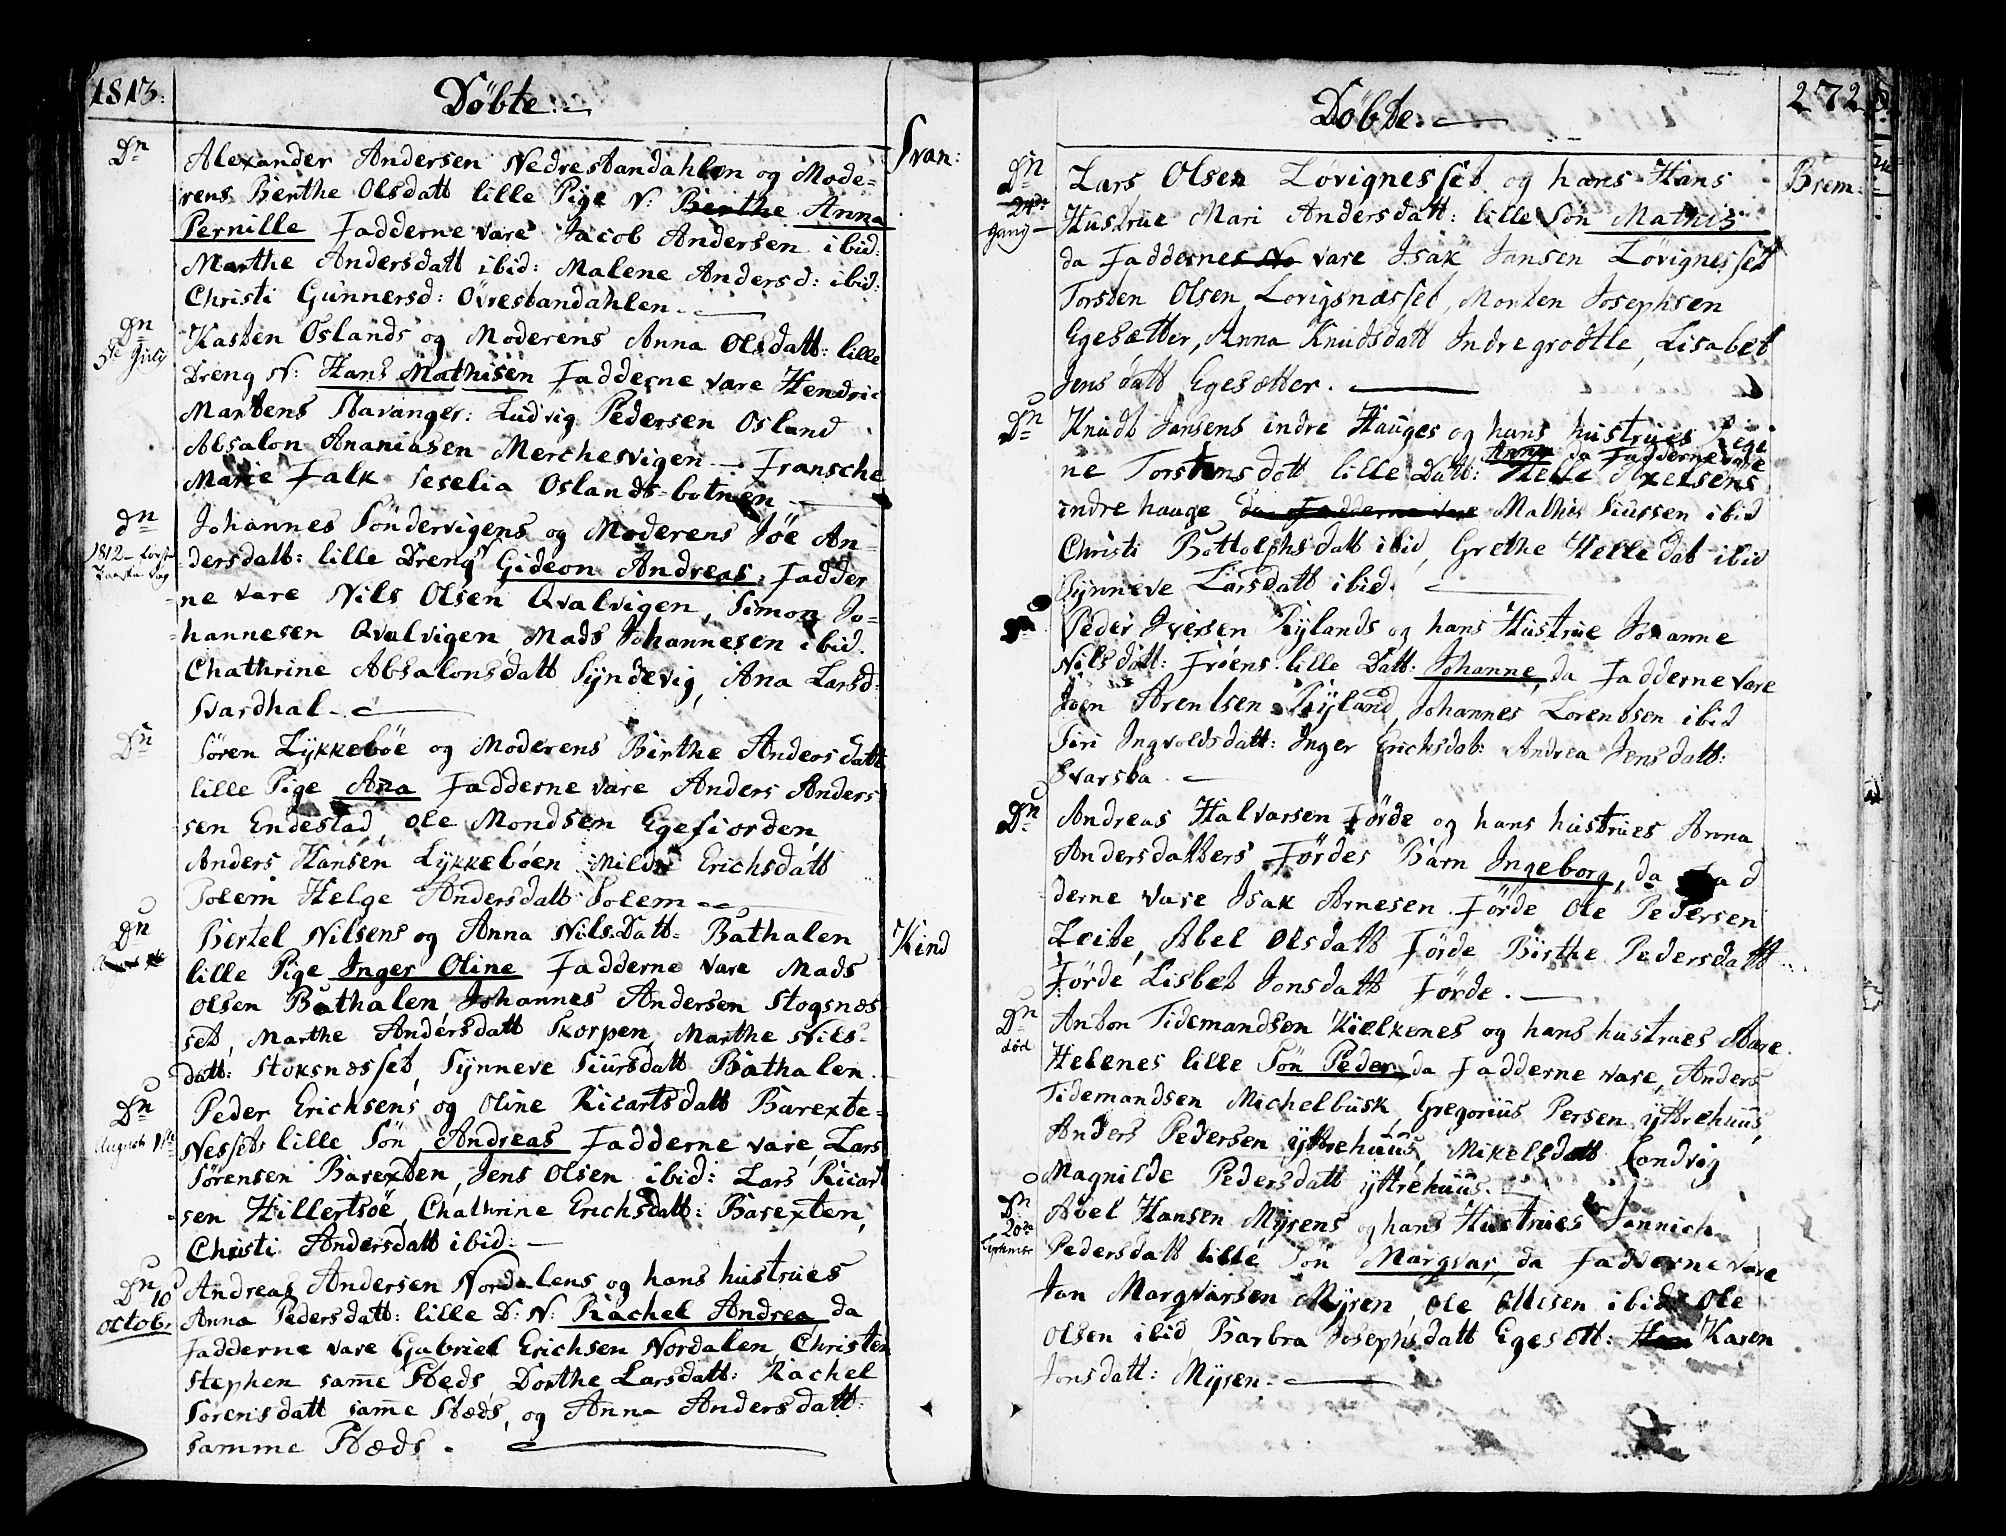 1813.
Döbte.
Svan:
Dn
Alexander Andersen Nedrestandahlen og Mode=
rens Berthe Olsdatt lille Pige N: Berthe Anna
Pernille Fadderne vare Jacob Andersen ibid:
Marthe Andersdatt ibid: Malene Andersd: ibid:
Christi Gunnersd: Övrestandahlen
Dn
5te Julj
Kasten Oslands og Moderens Anna Olsdatt: lille
Dreng N: Hans Mathisen Fadderne vare Hendric
Martens Stavanger: Ludvig Pedersen Osland
Absalon Ananiasen Merchesvigen Fransche
Marie Falk Seselia Oslands-botnen
Dn
1812
Johannes Söndervigens og Moderens Jöe An=
dersdatt: lille Dreng Gideon Andreas: Fadder
ne vare Nils Olsen Qvalvigen, Simon Jo=
hannesen Qvalvigen, Mads Johannesen ibid.
Chathrine Absalonsdatt Syndevig, Ana Larsd:
Svardhal
Dn
Sören Lykkeböe og Moderens Birthe Andersdatt
lille Pige Ana Fadderne vare Anders Anders
sen Endestad, Ole Mondsen Egefiorden
Anders Hansen Lykkeböen Mildri Erichsdatt
Solem Helge Andersdatt Solem
Kind
Dn
Bertel Nilsens og Anna Nils:Datt= Båthalen
lille Pige Inger Oline Fadderne vare Mads
Olsen Båthalen, Johannes Andersen Stogsnæs
set, Marthe Andersdatt Skorpen, Marthe Nils=
datt: Stoksnæsset, Synneve Siursdatt Båthalen
Dn
August 1ste
Peder Erichsens og Oline Ricartsdatt Barexte=
Nessets lille Sön Andreas Fadderne vare, Lars
Sörensen Barexten, Jens Olsen ibid: Lars Ricart
sen Hillertsöe, Chathrine Erichsdatt: Barexten,
Christi Andersdatt ibid:
Dn 10
Octob:
Andreas Andersen Nordalens og hans hustrues
Anna Pedersdatt: lille D: N: Rachel Andrea da
Fadderne vare Gabriel Erichsen Nordalen, Christen
Stephen samme Stæds Dorthe Larsdatt: Rachel
Sorensdatt samme Stæds, og Anna Andersdatt:
samme Stæds.
272
Döbte.
Brem:
Dn
gang
Lars Olsen Lövignesset og hans Hans
Hustrue Mari Andersdatt: lille Sön Mathis
da Fadderne vare Isak Jansen Lövignesset
Torsten Olsen, Lovigsnæsset, Morten Josephsen
Egesætter, Anna Knudsdatt Indregrodtle, Lisabet
Jensdatt Egesætter.
Dn
Knudt Jansens indre Hauges og hans hustrues Regi
ne Torstensdatt lille Datt: Anna da Fadderne vare
Helle Axelsens
indre hauge da Fadderne vare Mathis Siussen ibid
Christi Bottolphsdatt ibid, Grethe Helledat ibid
Synneve Larsdatt ibid.
Peder Iversen Rylands og hans Hustrue Johanne
Nilsdatt: Fröens lille Datt: Johanne, da Fadderne vare
Joen Arentsen Ryland, Johannes Lorentsen ibid
Siri Ingvoldsdatt: Inger Erichsdat: Andrea Jensdatt:
Svarsta
Dn
Andreas Halvarsen Förde og hans hustrues Anna
Andersdatters Fördes Barn Ingeborg, da Fad
derne vare Isak Arnesen Förde Ole Pedersen
Leite, Abel Olsdatt Förde Birthe Pedersdatt
Förde Lisbet Jonsdatt Förde.
Dn
död
Anton Tidemandsen Kielkenes og hans hustrues Mare
Helenes lille Sön Peder da Fadderne vare, Anders
Tidemandsen Michelbusk, Gregorius Persen ÿttrehuus,
Anders Pedersen ÿttrehuus, Mikelsdatt Sondvig
Magnilde Pedersdatt ÿttrehuus.
Dn
20de
Abel Hansen Mÿrens og hans Hustrues Jannich
Pedersdatt lille Sön Marqvar, da Fadderne vare
Jan Marqvarsen Mÿren Ole Ollisen ibid Ole
Olsen ibid Barbra Josephsdatt Egesött: Karen
Jonsdatt: Mÿren